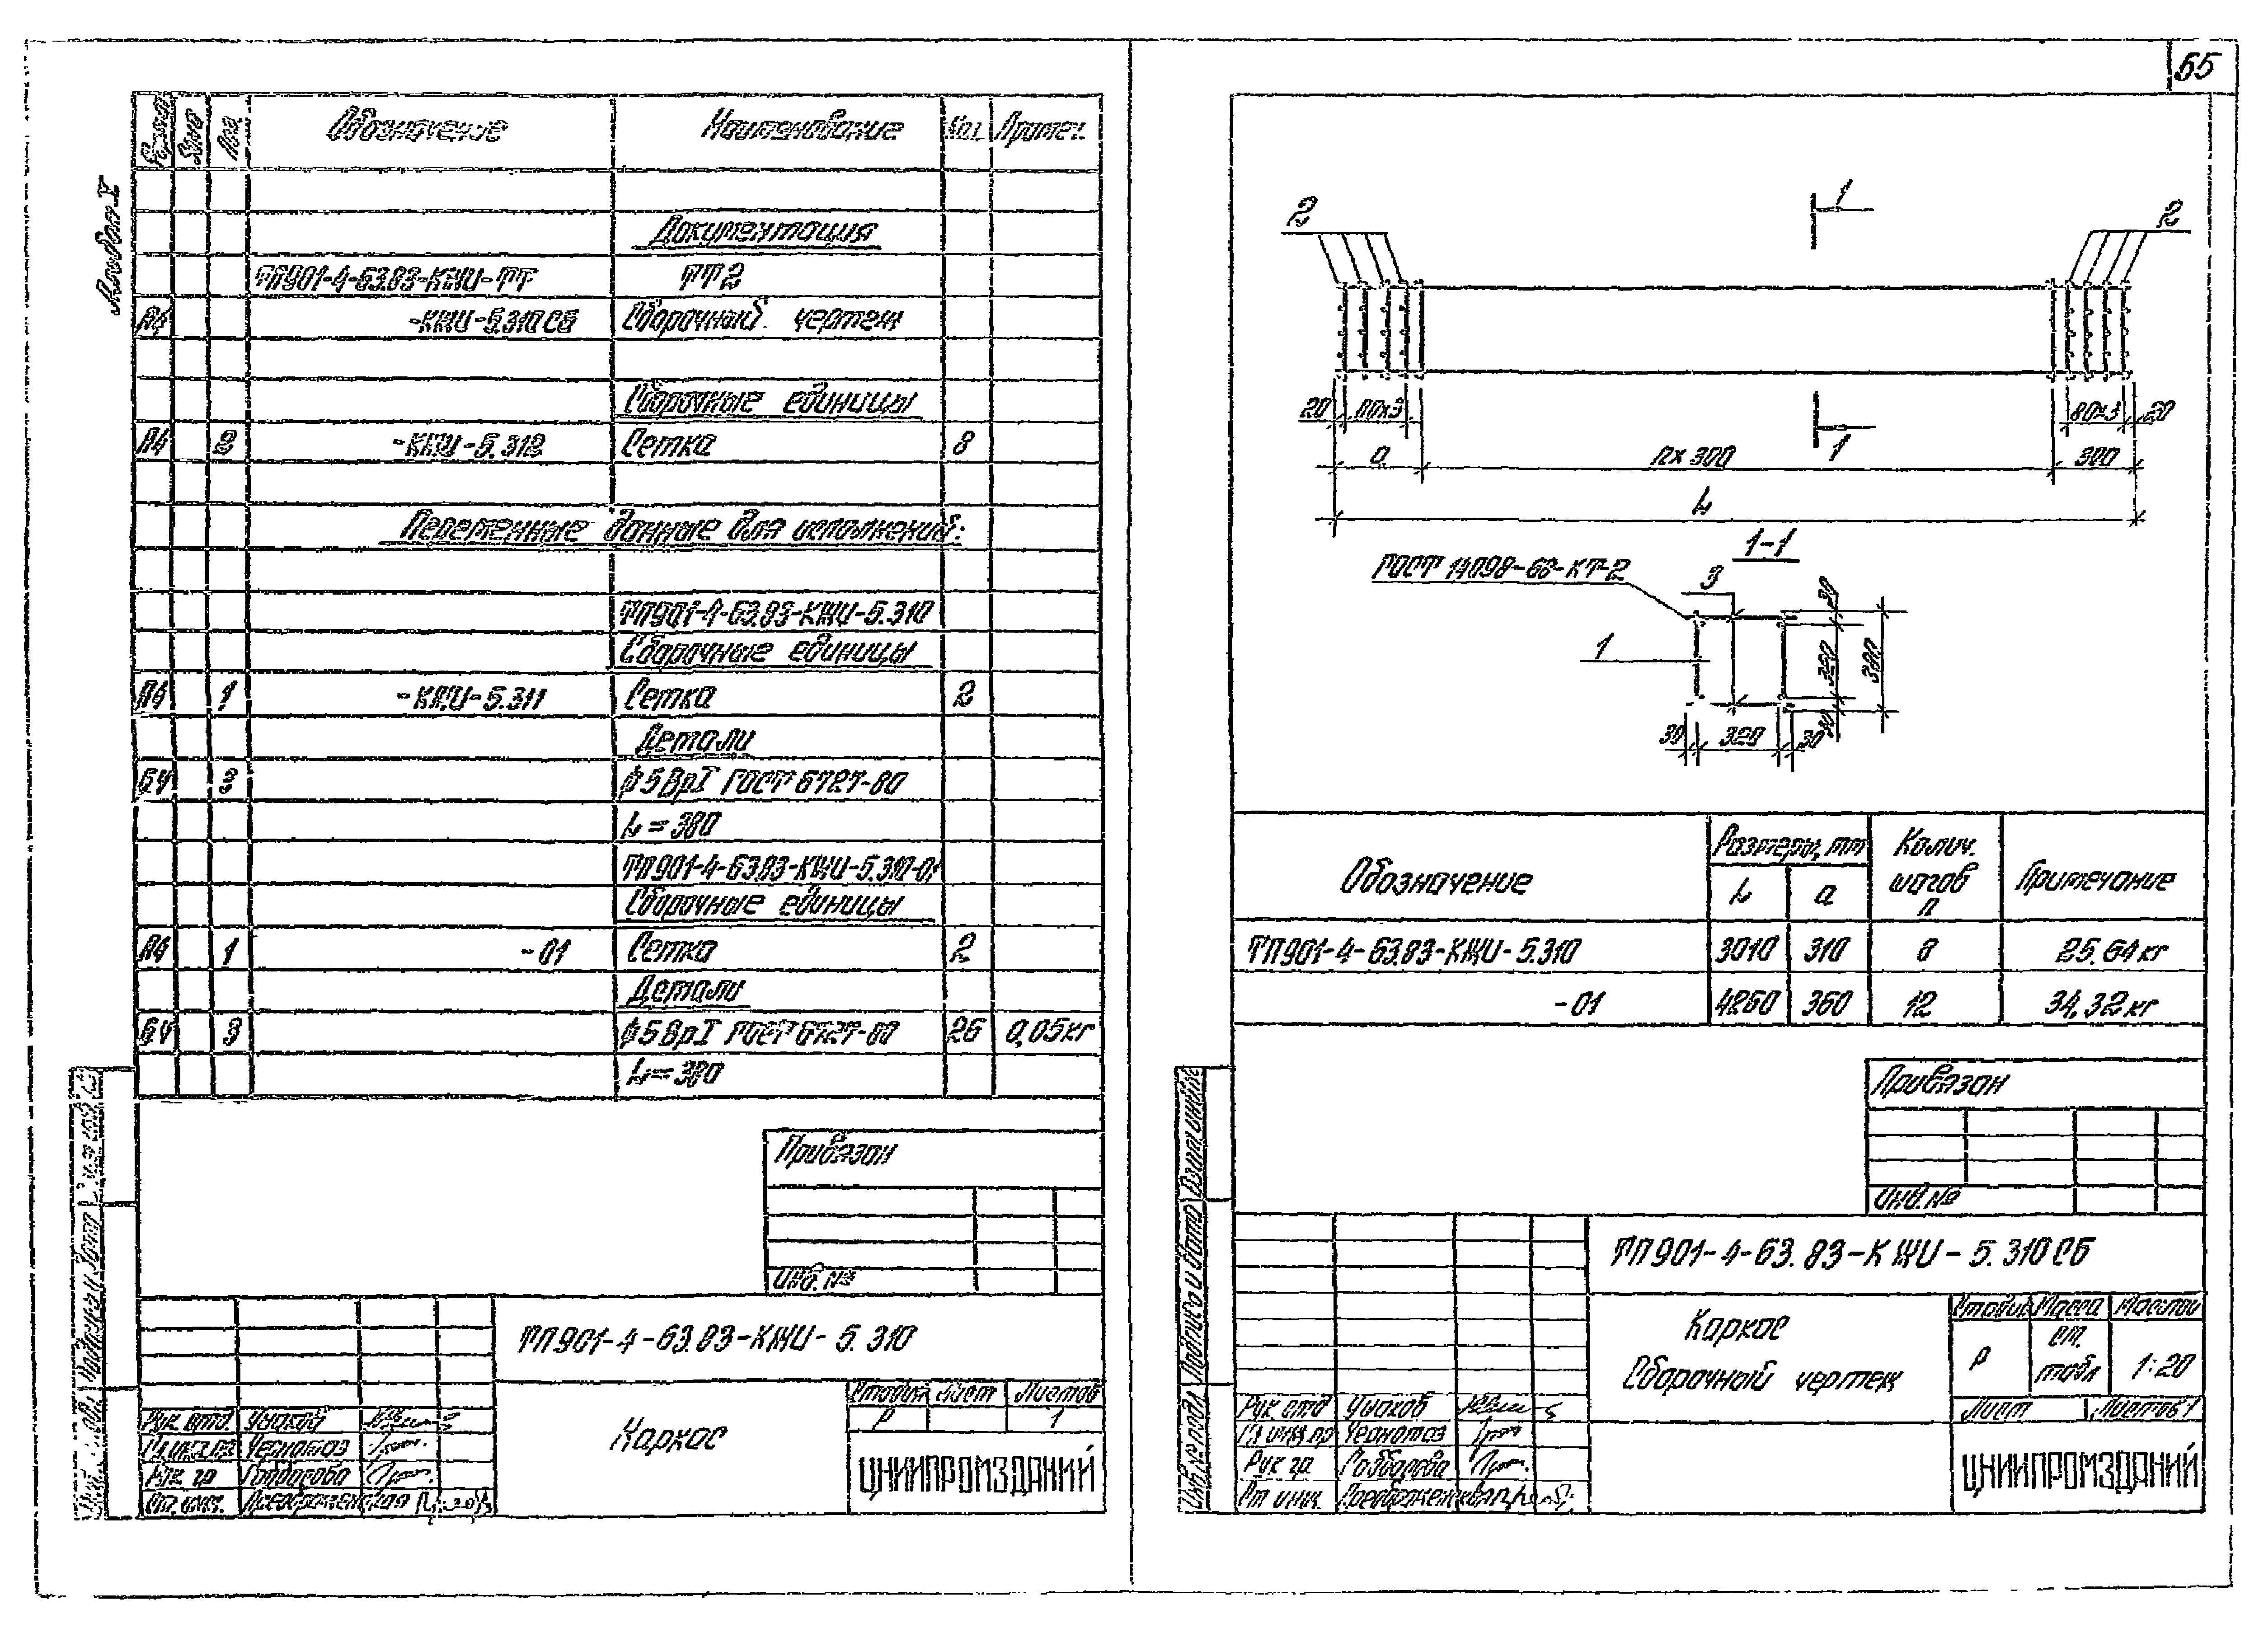 55
Альбом V
Формат Зона Поз. Обозначение Наименование Кол. Примеч.
Документация
ТП901-4-63.83-КЖИ-ТТ ТТ2
А4 -КЖИ-5.310СБ Сборочный чертеж
Сборочные единицы
А4 2 -КЖИ-5.312 Сетка 8
Переменные данные для исполнений:
ТП901-4-63.83-КЖИ-5.310
Сборочные единицы
А4 1 -КЖИ-5.311 Сетка 2
Детали
БЧ 3 ф5ВрI ГОСТ 6727-80
L=380
ТП901-4-63.83-КЖИ-5.310-01
Сборочные единицы
А4 1 -01 Сетка 2
Детали
БЧ 3 ф5ВрI ГОСТ 6727-80 26 0,05кг
L=380
Привязан
Инв. №
ТП901-4-63.83-КЖИ-5.310
Каркас
Стадия Лист Листов
Р 1
ЦНИИПРОМЗДАНИЙ
Рук. отд. Ушаков
Гл.инж.пр. Черномаз
Рук. гр.
Ст. инж. Преображенская
1
2 2
20 80×3 20
1
а п×300 300
L
1-1
ГОСТ 14098-68-КТ-2
3
1
30
320
380
30
30 320 30
Обозначение Размеры, мм Колич. шагов п Примечание
L а
ТП901-4-63.83-КЖИ-5.310 3010 310 8 25.64кг
-01 4260 360 12 34,32кг
Привязан
Инв. №
ТП901-4-63.83-КЖИ-5.310СБ
Каркас
Сборочный чертеж
Стадия Масса Масштаб
Р см. табл 1:20
Лист Листов 1
ЦНИИПРОМЗДАНИЙ
Рук отд Ушаков
Гл инж пр Черномаз
Рук гр.
Ст инж. Преображенская
Инв.№ подл. Подпись и дата Взам. инв. №